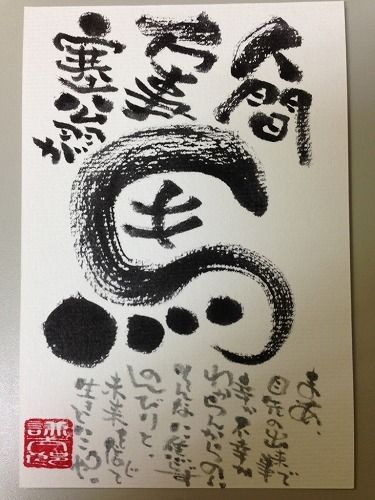 人間
万事
塞翁が
馬
まあ、
目先の出来事で
幸か不幸か
わからんからのぉ
そんなに焦らず
のんびりと、
未来を信じて
生きていこうや。